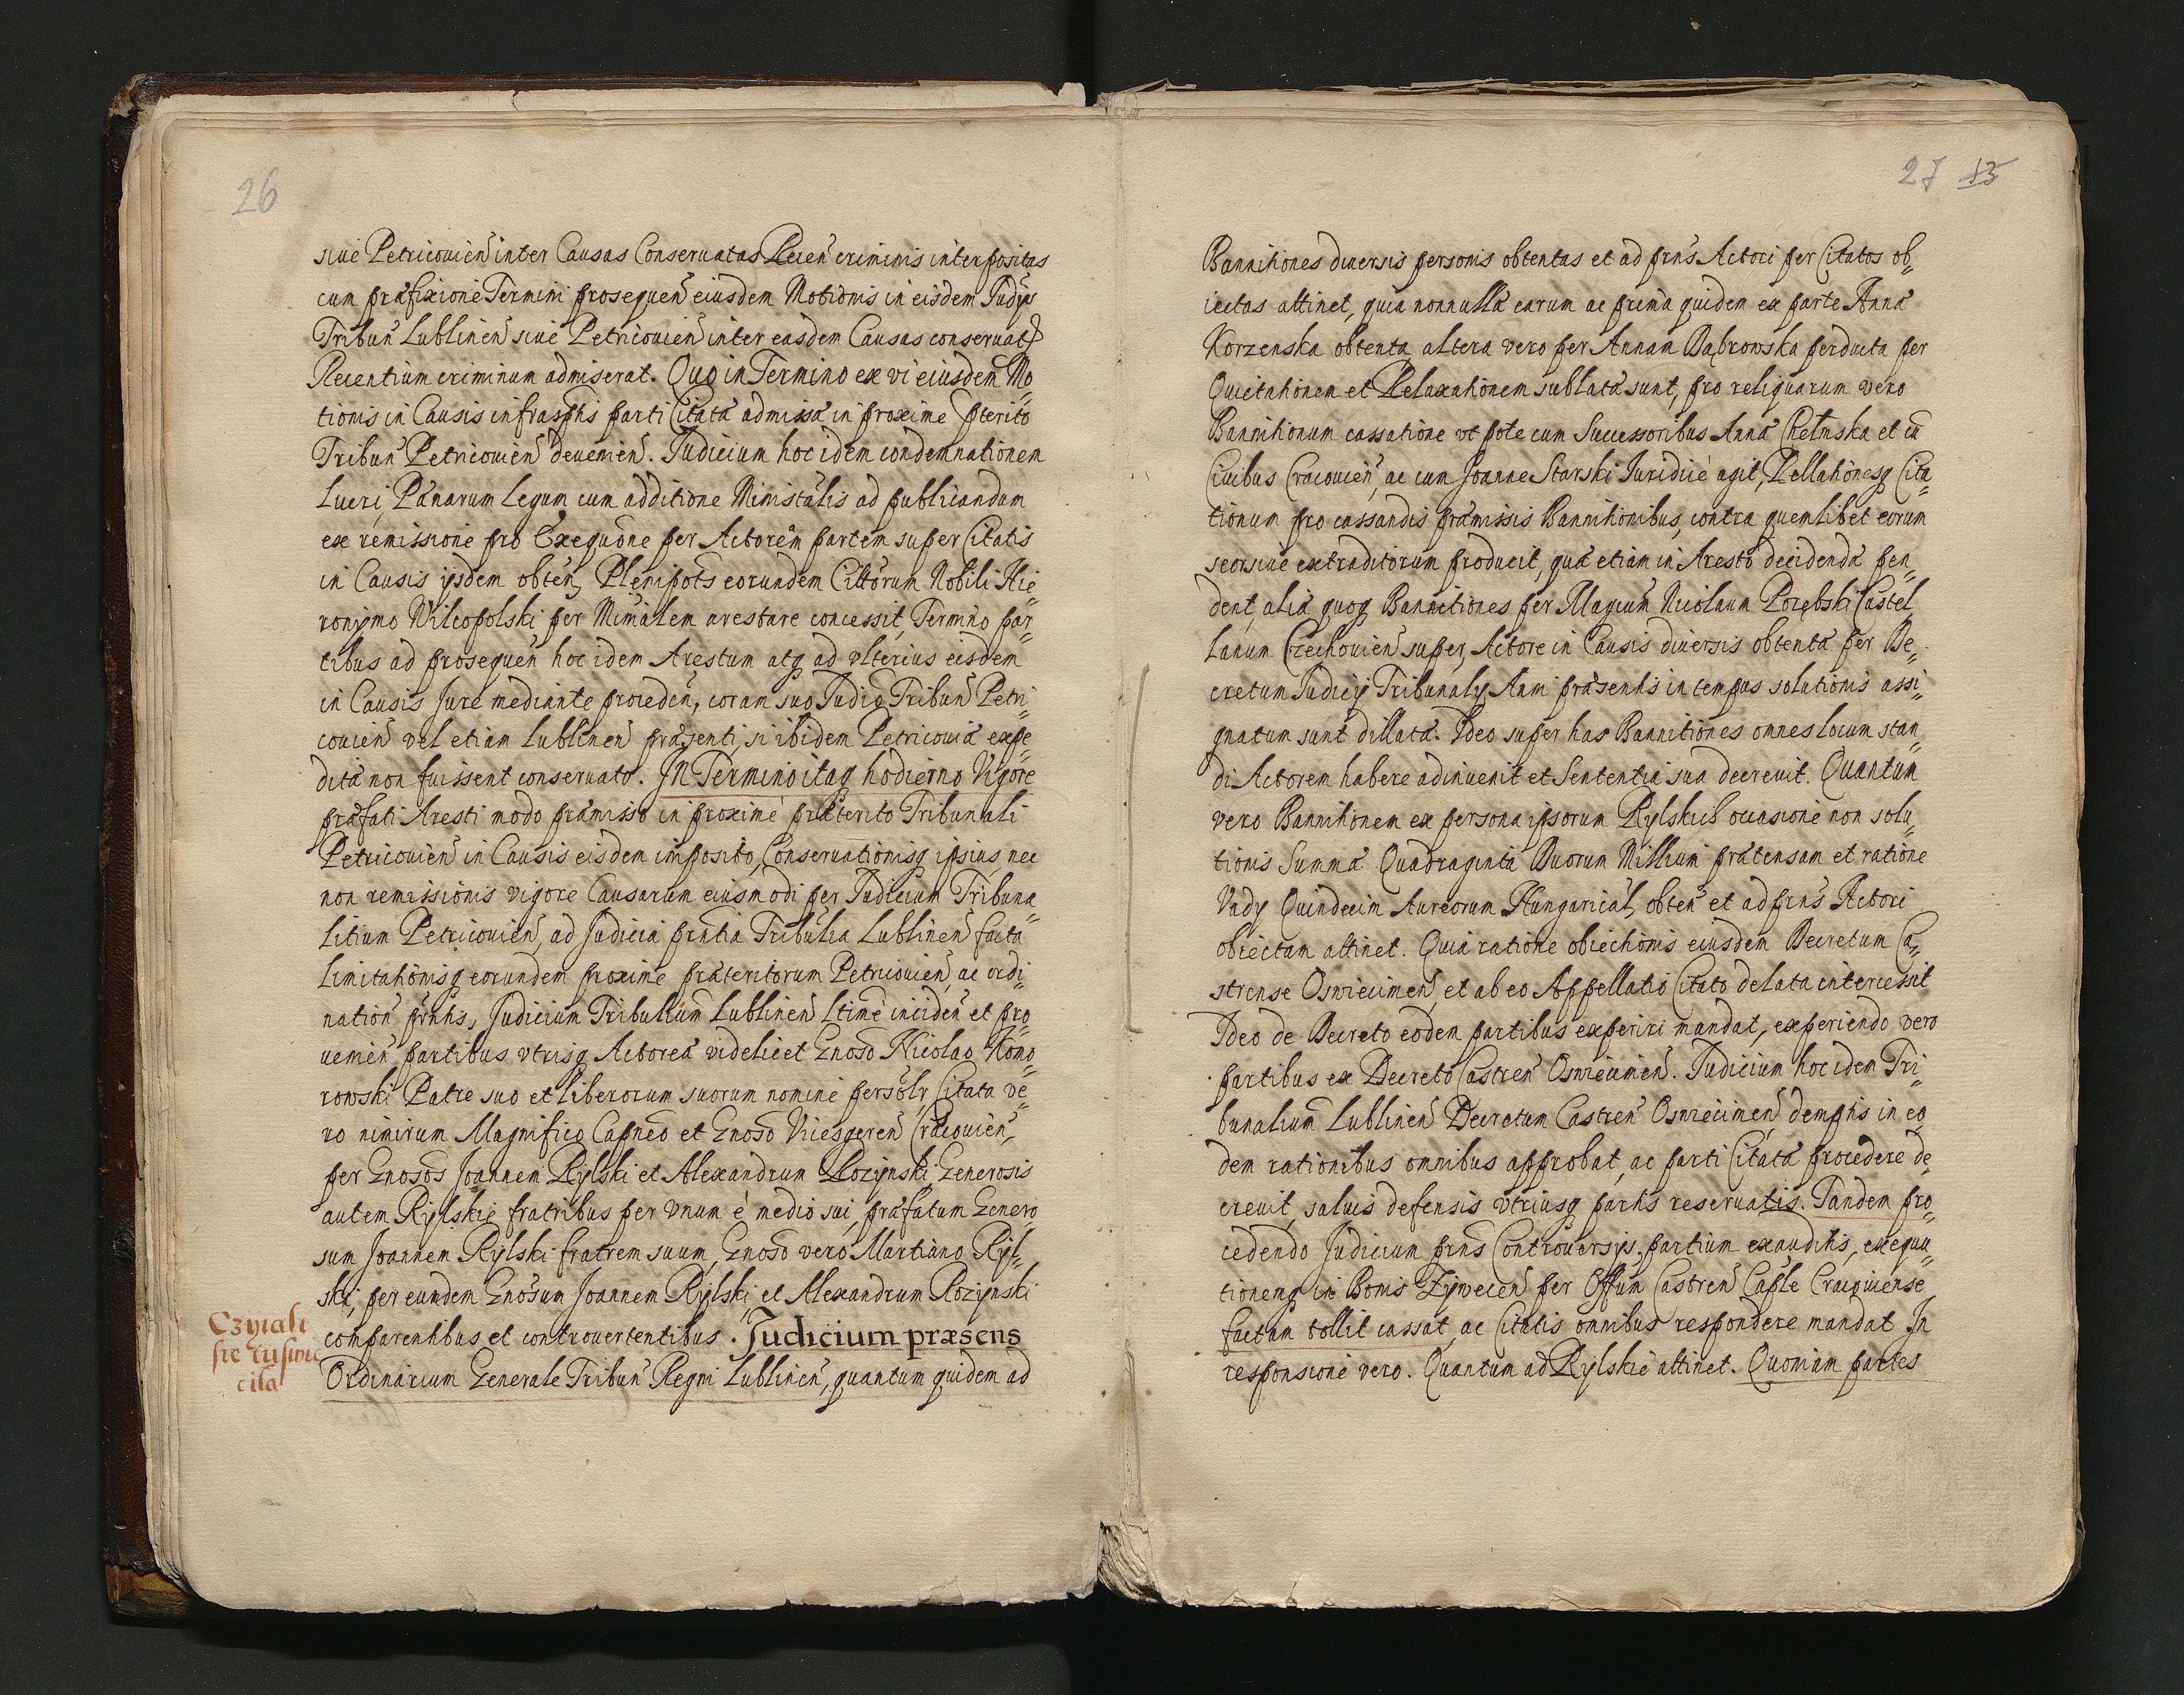 26
siue Petricouien inter Causas Conseruatas Recen criminis interpositas
cum præfixione Termini prosequen eiusdem Motionis in eisdem Judijs
Tribun Lublinen siue Petricouien inter easdem Causas conseruat
Recentium criminum admiserat. Quo in Termino ex vi eiusdem Mo
tionis in Causis infrasptis parti Citatæ admissæ in proxime pterito
Tribun Petricouien deuenien. Judicium hoc idem condemnationem
Lucri, Pænarum Legum cum additione Ministralis ad publicandum
ex remissione pro Exequõne per Actorem partem super Citatis
in Causis ijsdem obten, Plenipots eorundem Cittorum Nobili Hie
ronymo Wilcopolski per Mimalem arestare concessit, Termino par
tibus ad prosequen hoc idem Arestum atq ad vlterius eisdem
in Causis Jure mediante proceden, coram suo Judio Tribun Petri
couien vel etiam Lublinen præsenti, si ibidem Petricouiæ expe
ditæ non fuissent conseruato. IN Termino itaq hodierno Vigore
præfati Aresti modo præmisso in proxime præterito Tribunali
Petricouien in Causis eisdem imposito, Conseruationisq ipsius nec
non remissionis vigore Causarum eiusmodi per Judicium Tribuna
litium Petricouien, ad Judicia prntia Tribulia Lublinen facta
Limitationisq eorundem proxime præteritorum Petricouien, ac ordi
nation prntis, Judicium Tribulium Lublinen Ltime inciden et pro
uenien partibus vtrisq Actorea videlicet Gnoso Nicolao Komo
rowski Patre suo et liberorum suorum nomine persolr Citata ve
ro nimirum Magnifico Capneo et Gnoso Vicesgeren Cracouien,
per Gnosos Joannem Rylski et Alexandrum Rozynski, Generosis
autem Rylskie fratribus per Vnum è medio sui, præfatum Genero
sum Joannem Rylski fratrem suum, Gnoso vero Martiano Ryl
ski, per eundem Gnosum Joannem Rylski, et Alexandrum Rozynski
comparentibus et controuertentibus. Judicium præsens
Ordinarium Generale Tribun Regni Lublinen, quantum quidem ad
Czynali
sie
cila
27 13
Bannitiones diuersis personis obtentas et ad prns Actori per Citatos ob
iectas attinet, quia nonnullæ earum ac prima quidem ex parte Annæ
Korzenska obtenta, altera vero per Annam Dąbrowska perducta per
Quietationem et Relaxationem sublatæ sunt, pro reliquarum vero
Bannitionum cassatione vt pote cum Successoribus Annæ Chelmska et cu
Ciuibus Cracouien, ac cum Joanne Starski Juridice agit, Rellationesq Cita
tionum pro cassandis præmissis Bannitionibus, contra quemlibet eorum
seorsiue extraditorum producit, quæ etiam in Aresto decidendæ pen
dent, aliæ quoq Bannitiones per Magcum Nicolaum Porębski Castel
lanum Czechouien super, Actore in Causis diuersis obtentæ per De
cretum Judicij Tribunaly Anni præsentis in tempus solutionis assi
gnatum sunt dillatæ. Ideo super has Bannitiones omnes locum stan
di Actorem habere adinuenit et Sententia sua decreuit. Quantum
vero Bannitionem ex persona ipsorum Rylskich occasione non solu
tionis Summæ Quadraginta Duorum Millium prætensam et ratione
Vady Quindecim Aureorum Hungarical, obten et ad prns Actori
obiectam attinet. Quia ratione obiectionis eiusdem Decretum Ca
strense Osuiecimen, et ab eo Appellatio Citato delata intercessit
Ideo de Decreto eodem partibus experiri mandat, experiendo vero
partibus ex Decreto Castren Osuiecimen. Judicium hoc idem Tri
bunalium Lublinen Decretum Castren Osuiecimen demptis in eo
dem rationibus omnibus approbat, ac parti Citatæ procedere de
creuit, saluis defensis vtriusq partis reseruatis. Tandem pro
cedendo Judicium prns Controuersijs partium exauditis, exequu
tionemq in Bonis Zyweicen per Offum Castren Caple Cracouiense
factam tollit cassat, ac Citatis omnibus respondere mandat In
responsione vero. Quantum ad Rylskie attinet. Quoniam partes